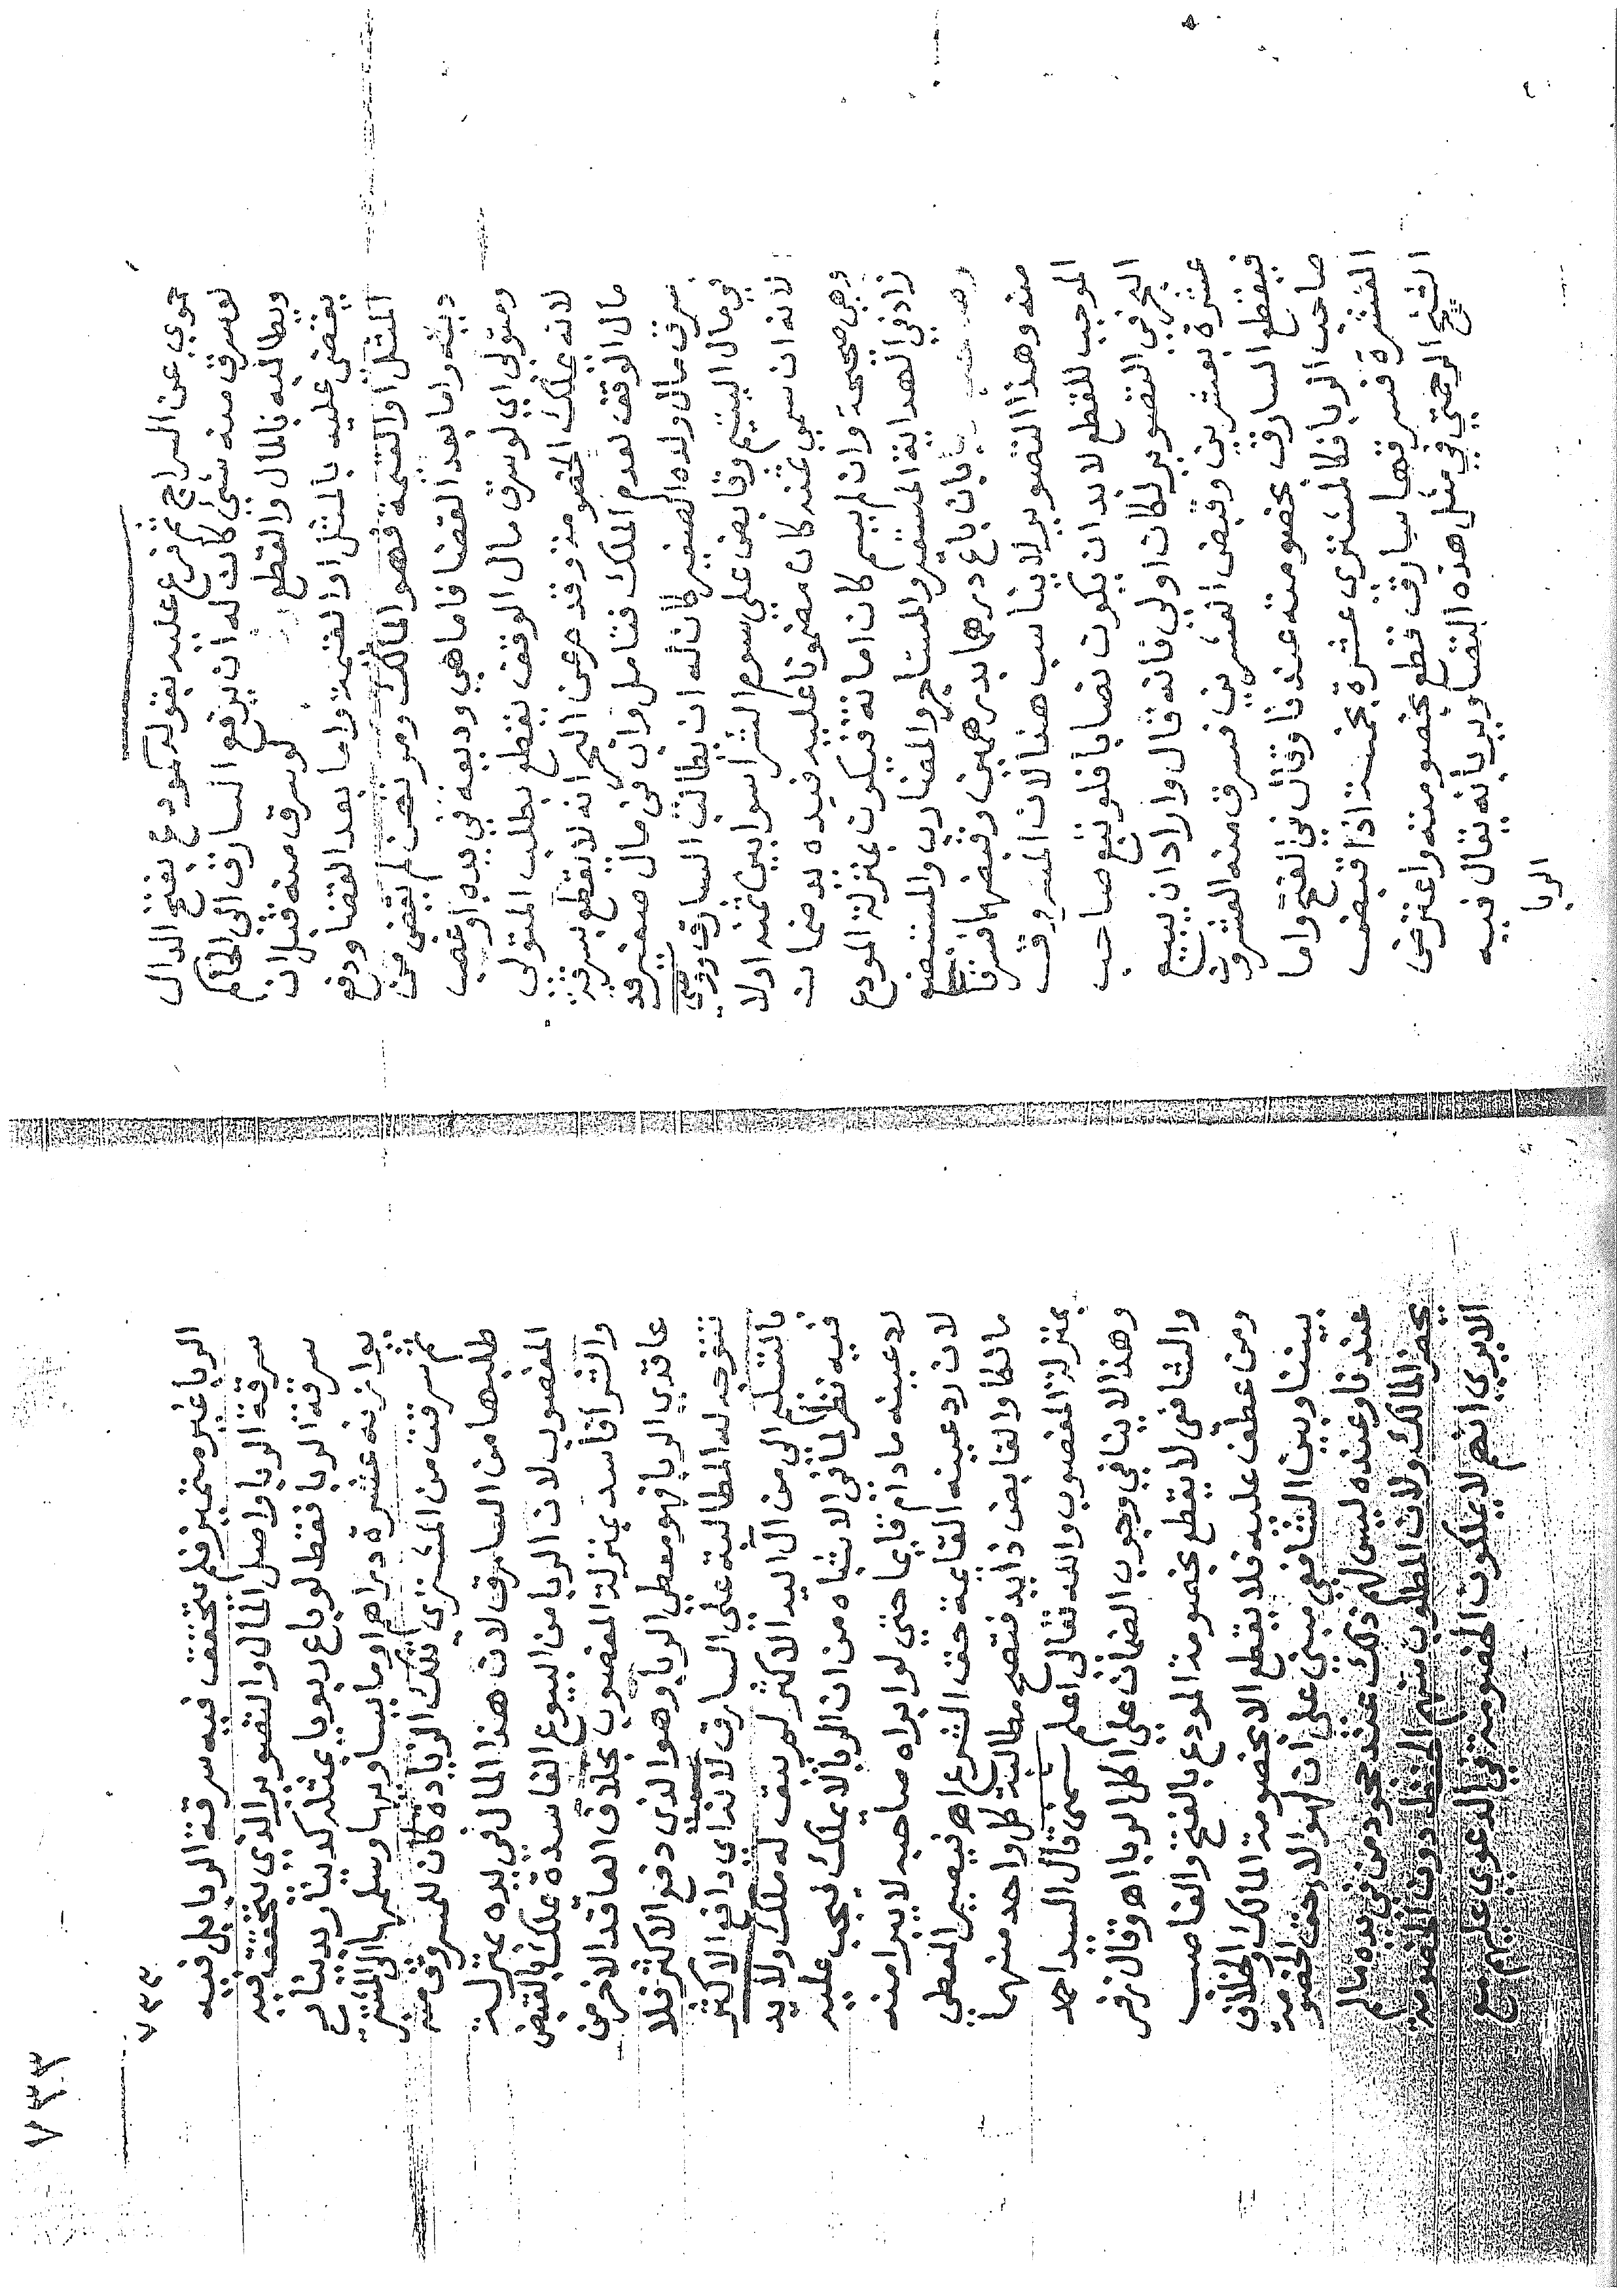 حموي عن السراج ثم فرع عليه بقوله كمودع بفتح الدال
لو سرق منه شيء كان له ان يرفع السارق الى الحاكم
ويطالبه بالمال والقطع لو سرق منه قبل ان
يقضى عليه بالمثل او القيمة واما بعد القضا ودفع
المثل او القيمة فهو المالك ومرتهن لم يقبض من
دينه واما بعد القضا فاما هي وديعة في يده او غصب
ومتولى اي لو سرق مال الوقف يقطع بطلب المتولى
لانه يملك الخصومة وقد مر عن البحر انه لا يقطع بسرقة
مال الوقف لعدم الملك فتامل واب في مال صغير قد
سرق مال ولده الصغير كان له ان يطالب السارق ووصي
في مال اليتيم وقابض على سوم الشرا سوا بين ثمنه اولا
لانه ان سمى ثمنه كان مضمونا عليه فيده يد ضمان
وهي صحيحة وان لم يسم كان امانة فتكون بمنزلة المودع
زاد في الهداية المستعير والمستاجر والمضارب والمستبضع
بان باع درهما بدرهمين وقبضهما فسرقا
منه وهذا التصوير لا يناسب هنا لان المسروق
الموجب للقطع لا بد ان يكون نصابا فلو تبع صاحب
البحر في التصوير لكان اولى فانه قال واراد ان يبيع
عشرة بعشرين وقبض العشرين فسرق منه العشرون
فيقطع السارق بخصومته عندنا وقال في الفتح واما
صاحب الربا فكالمشترى عشرة بخمسة اذا قبض
العشرة فسرقها سارق قطع بخصومته واعترض
الشيخ الرحمتي في مثل هذه التصاوير بانه يقال فيه
الربا
٧٣٣
٧٣٣
الربا غير متميز فلم يتحقق فيه سرقة الربا بل فيه
سرقة الربا واصل المال والتصوير الذي يتحقق فيه
سرقة الربا فقط لو باع ربويا بمثله كدينار بدينار
يوازنه عشرة دراهم او ما يساويها وسلمها الى المشتري
ثم سرقت من المشتري تلك الزيادة كان للمسروق منه
طلبها من السارق لان هذا المال في يده بمنزلة
المغصوب لان الربا من البيوع الفاسدة يملك بالقبض
والشرا فاسد بمنزلة المغصوب بخلاف العاقد الاخر من
عاقدي الربا فهو معطي الربا وهو الذي دفع الاكثر فلا
تتوجه له المطالبة على السارق لانه اي دافع الاكثر
بالتسليم الى من آل اليه الاكثر لم يبق له ملك ولا يد
فيه نظر لما في الاشباه من ان الربا لا يملك فيجب عليه
رد عينه ما دام قايما حتى لو ابراه صاحبه لا يبرا منه
لان رد عينه القايمة حق الشرع اهـ فيصير المعطي
مالكا والقابض ذا يد فتصح مطالبة كل واحد منهما
بمنزلة المغصوب والله تعالى اعلم شمنى قال السيد احمد
وهذا لا ينافي وجوب الضمان على اكل الربا اهـ وقال زفر
والشافعى لا يقطع بخصومة المودع بالفتح والغاصب
ومن عطف عليه فلا يقطع الا بخصومة المالك والخلاف
بيننا وبين الشافعي مبنى على ان لهولا حق الخصومة
عندنا وعنده ليس لهم ذلك عند جحود من في يده مالم
يحضر المالك ولان المطلوب منهم الحفظ دون الخصومة
الا يرى انهم لا يملكون الخصومة في الدعوى عليهم مع